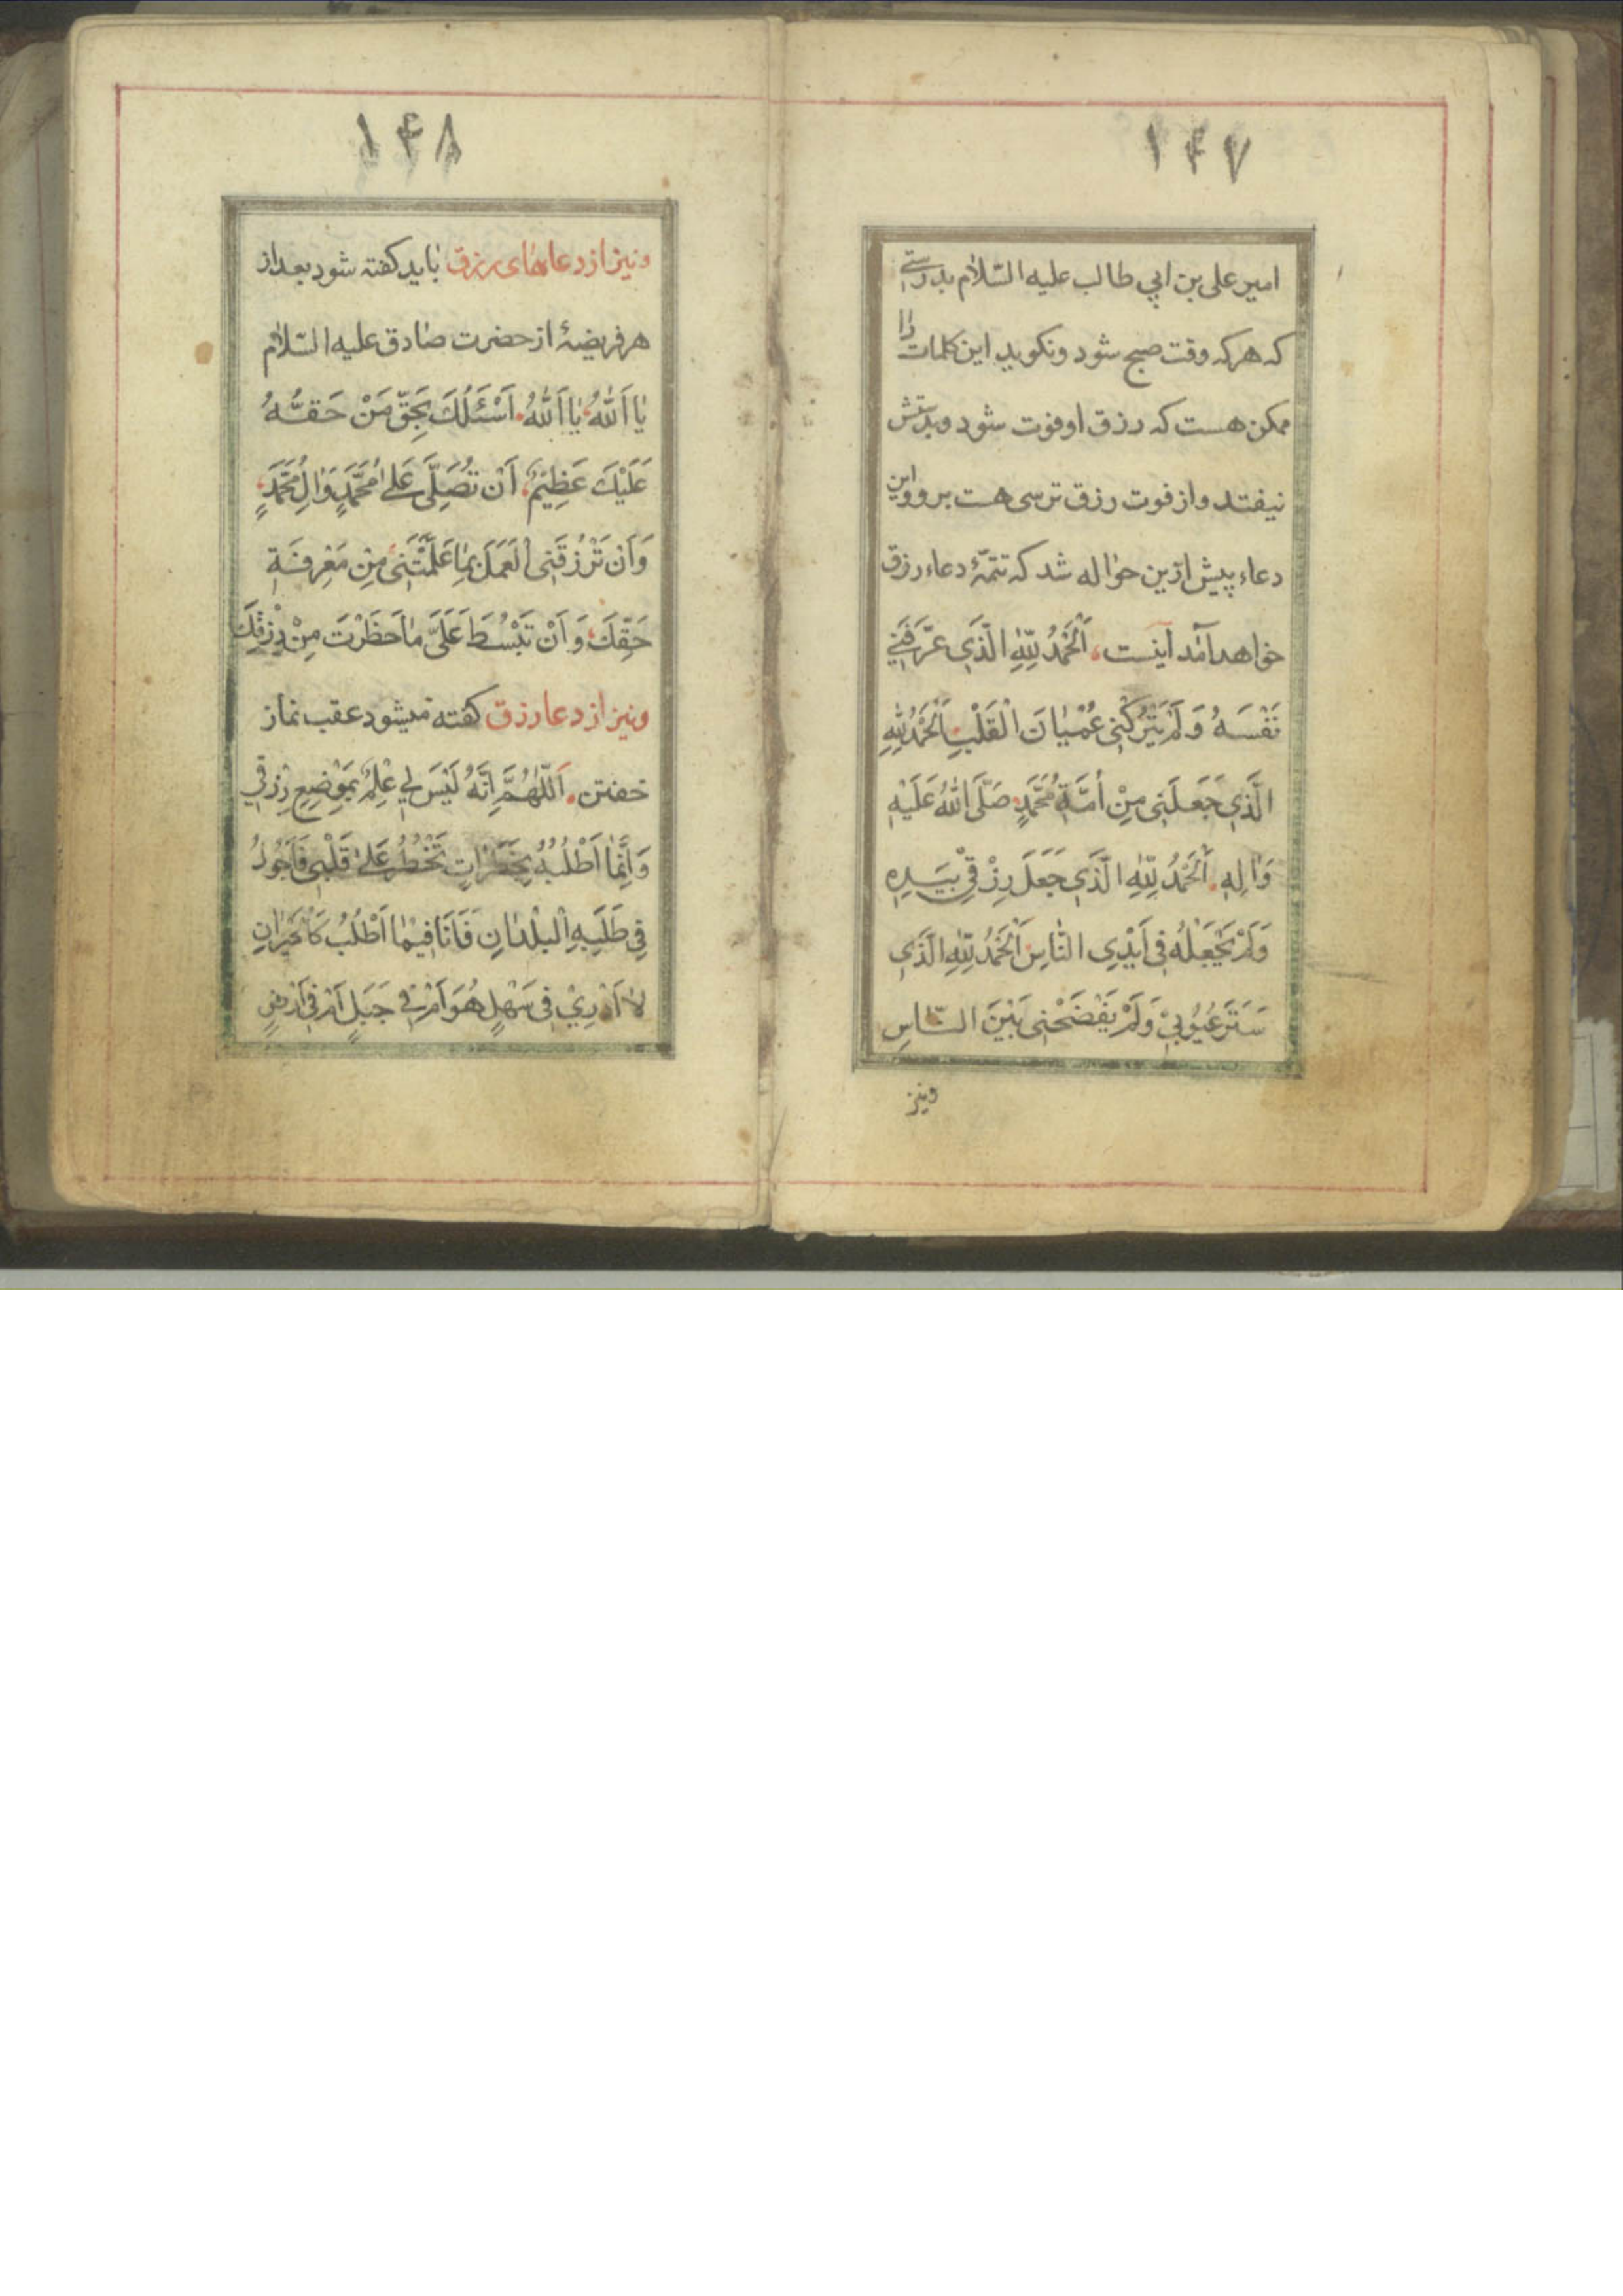 ۱۴۷
امیر علی بن ابی طالب علیه السّلام بدرستی
که هر که وقت صبح شود و نکوید این کلمات را
ممکن هست که رزق او فوت شود و بدستش
نیفتد و از فوت رزق ترسی هست بر و و این
دعاء پیش ازین حواله شد که تتمّهٔ دعاء رزق
خواهد آمد آینست، اَلْحَمْدُ لِلّٰهِ الَّذَی عَرَّفَنِی
نَفْسَهُ وَ لَمْ یَتْرُکْنِی عُمْیٰانَ الْقَلْبِ اَلْحَمْدُ لِلّٰهِ
الَّذِی جَعَلَنِی مِنْ اُمَّةِ مُحَمَّدٍ صَلَّی اللّٰهُ عَلَیْهِ
وَاٰلِهِ. اَلْحَمْدُ لِلّٰهِ الَّذَی جَعَلَ رِزْقِی بِیَدِهِ
وَلَمْ یَجْعَلْهُ فِی اَیْدِی النّٰاسِ اَلْحَمْدُ لِلّٰهِ الَّذَی
سَتَرَ عُیُوُبِیْ وَلَمْ یَفْضَحْنِی بَیْنَ النّٰاسِ
و نیز
۱۴۸
و نیز از دعاهای رزق باید کفته شود بعد از
هر فریضهٔ از حضرت صٰادق علیه السّلام
یٰا اَللّٰهُ، یٰا اَللّٰهُ. اَسْئَلُكَ بِحَقِّ مَنْ حَقُّهُ
عَلَیْكَ عَظِیْمٌ. اَنْ تُصَلِّیَ عَلیٰ مُحَمَّدٍ وَاٰلِ مُحَمَّدٍ،
وَاَنْ تَرْزُقَنِی الْعَمَلَ بِمٰا عَلَّمْتَنِی مِنْ مَعْرِفَةِ
حَقِّكَ، وَ اَنْ تَبْسُطَ عَلَیَّ مٰا حَظَرْتَ مِنْ رِزْقِكَ
و نیز از دعا رزق کفته میشود عقب نماز
خفتن. اَللّٰهُمَّ اِنَّهُ لَیْسَ لِی عِلْمٌ بِمَوْضِعِ رِزْقِی
وَ اِنَّمٰا اَطْلُبُهُ بِخَطَرٰاتٍ تَخْطُرُ عَلیٰ قَلْبِی فَاَجُولُ
فِی طَلَبِهِ الْبُلْدٰانِ فَاَنَا فِیمٰا اَطْلُبُ کَالْحَیْرٰانِ
لاٰ اَدْرِیْ فِی سَهْلٍ هُوَ اَمْ فِی جَبَلٍ اَمْ فِی اَرْضٍ